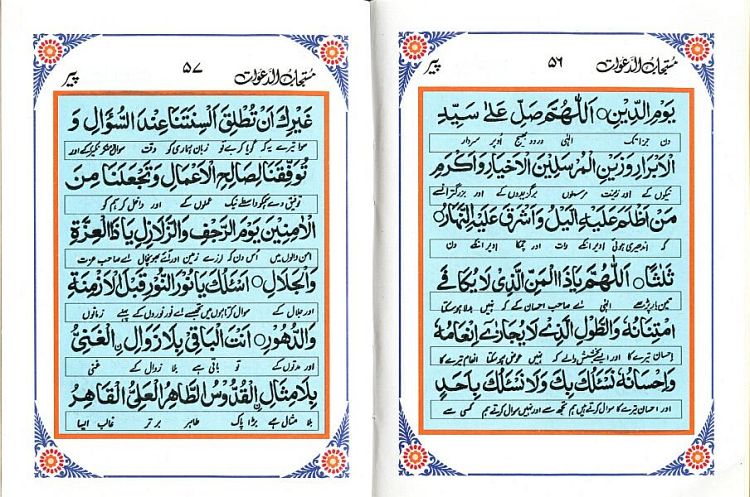 مستجاب الدعوات ۵۶ پیر
يَوْمِ الدِّيْنِ○ اَللّٰهُمَّ صَلِّ عَلٰى سَيِّدِ
دن جزا تک الٰہی درود بھیج اُوپر سردار
الْاَبْرَارِ وَزَيْنِ الْمُرْسَلِيْنَ الْاَخْيَارِ وَاَكْرَمِ
نیکوں کے اور زینت مرسلوں برگزیدوں کے اور بزرگتر
مَنْ اَظْلَمَ عَلَيْهِ الَّيْلُ وَاَشْرَقَ عَلَيْهِ النَّهَارُ○
کہ اندھیری ہوئی اوپر انکے رات اور چمکا اوپر انکے دن
ثَلٰثًا○ اَللّٰهُمَّ يَاذَا الْمَنِّ الَّذِىْ لَا يُكَافٰے
تین بار پڑھے الٰہی اے صاحب احسان کے کہ نہیں بدلا ہوسکتا
امْتِنَانُهٗ وَالطَّوْلِ الَّذِىْ لَا يُجَازٰے اِنْعَامُهٗ
احسان تیرے کا اور اے بخشش والے کہ نہیں عوض ہوسکتا انعام تیرے کا
وَاِحْسَانُهٗ نَسْئَلُكَ بِكَ وَلَا نَسْئَلُكَ بِاَحَدٍ
اور احسان تیرے کا سوال کرتے ہیں ہم تجھ سے اور نہیں سوال کرتے ہم کسی سے
مستجاب الدعوات ۵۷ پیر
غَيْرِكَ اَنْ تُطْلِقَ اَلْسِنَتَنَا عِنْدَ السُّؤَالِ وَ
سوا تیرے یہ کہ گویا کرے تو زبان ہماری کو وقت سوال منکر نکیر کے اور
تُوَفِّقَنَا لِصَالِحِ الْاَعْمَالِ وَتَجْعَلَنَا مِنَ
توفیق دے ہمکو واسطے نیک عملوں کے اور داخل کر ہم کو
الْاٰمِنِيْنَ يَوْمَ الرَّجْفِ وَالزَّلَازِلِ يَاذَا الْعِزَّةِ
امن والوں میں اُس دن کہ لرزے زمین اور آئے بھونچال اے صاحب عزت
وَالْجَلَالِ○ اَسْئَلُكَ يَا نُوْرَ النُّوْرِ قَبْلَ الْاَزْمِنَةِ
اور جلال کے سوال کرتا ہوں میں تجھ سے اے نور نوروں کے پہلے زمانوں
وَالدُّهُوْرِ○ اَنْتَ الْبَاقِىْ بِلَا زَوَالٍ ۨالْغَنِىُّ
اور مدتوں کے تو باقی ہے بلا زوال کے غنی
بِلَا مِثَالِ ۨالْقُدُّوْسُ الطَّاهِرُ الْعَلِىُّ الْقَاهِرُ
بلا مثال ہے بڑا پاک طاہر برتر غالب ایسا